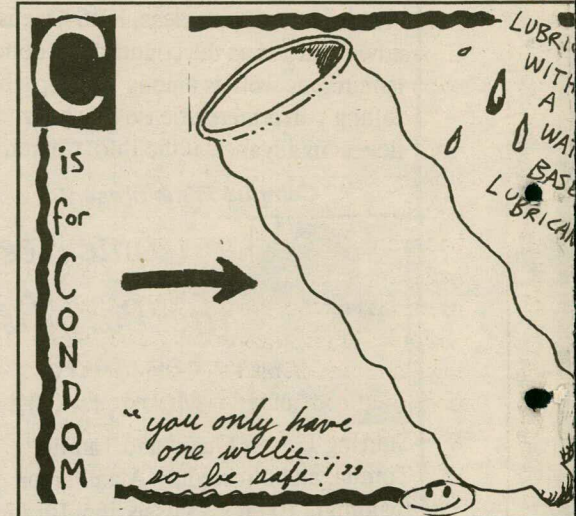 C
is
for
CONDOM
LUBRIC
WITH
A
WAT
BASE
LUBRICAN
"you only have
one willie...
so be safe!"